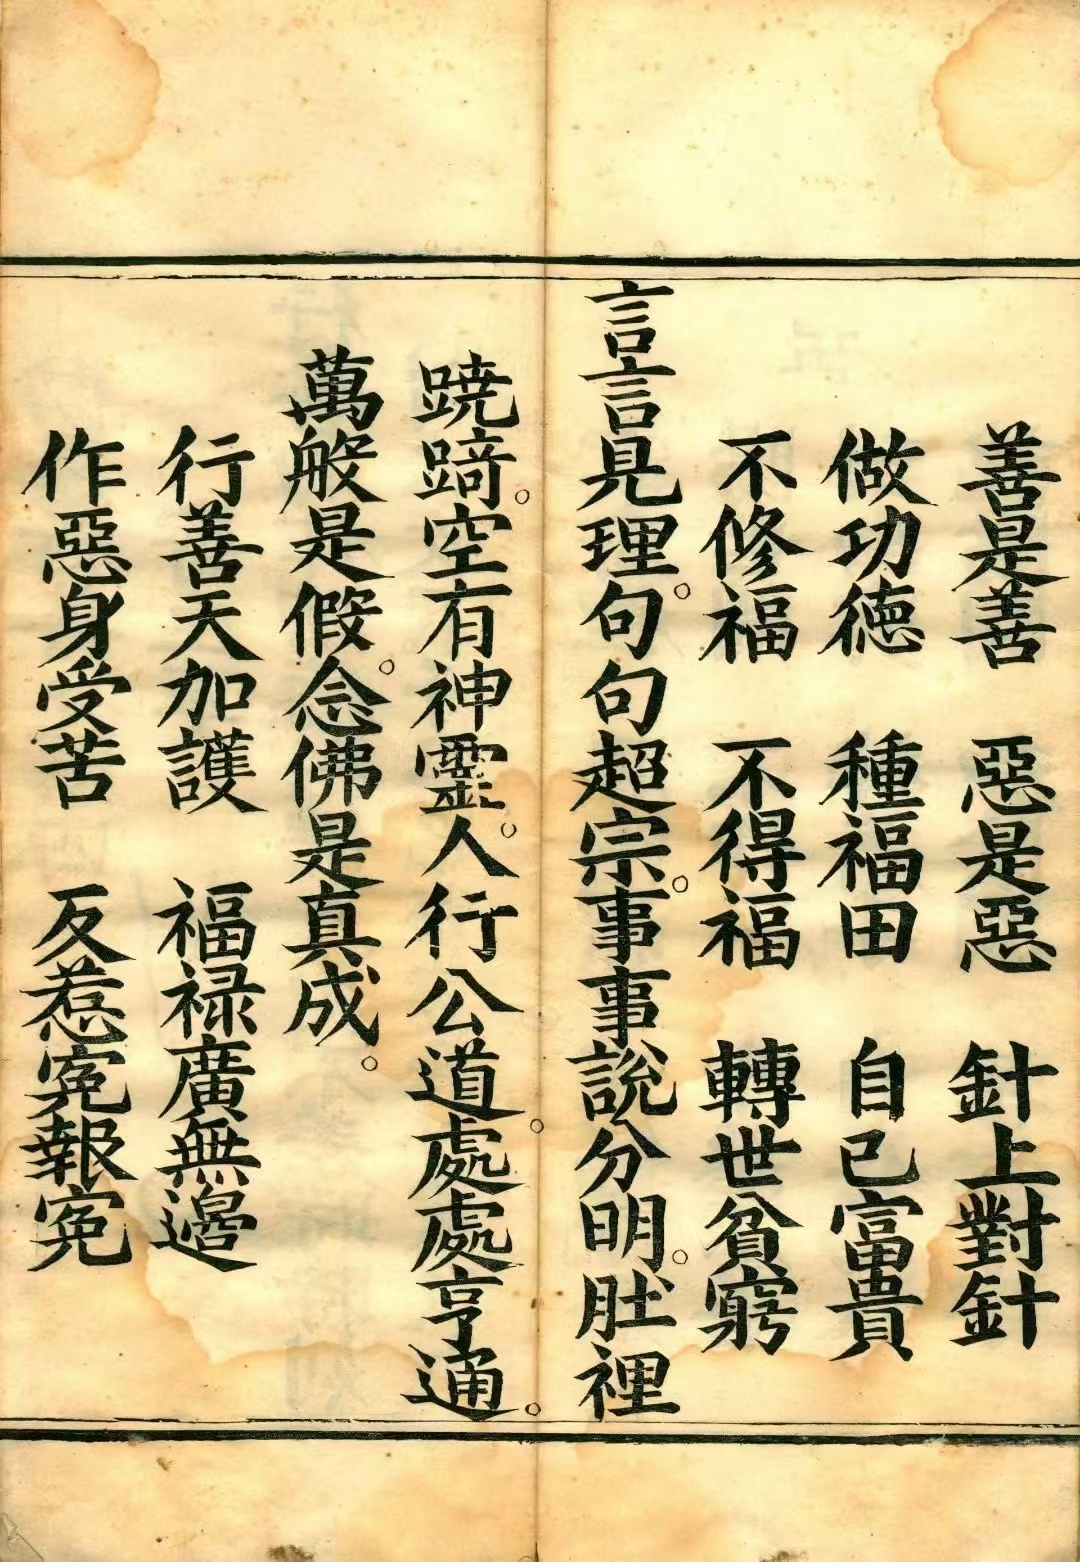 善是善　惡是惡　針上對針
做功德　種福田　自己富貴
不修福　不得福　轉世貧窮
言言見理。句句超宗。事事說分明。肚裡
蹺蹊。空有神靈。人行公道。處處亨通。
萬般是假。念佛是真成。
行善天加護　福祿廣無邊
作惡身受苦　反惹寃報寃